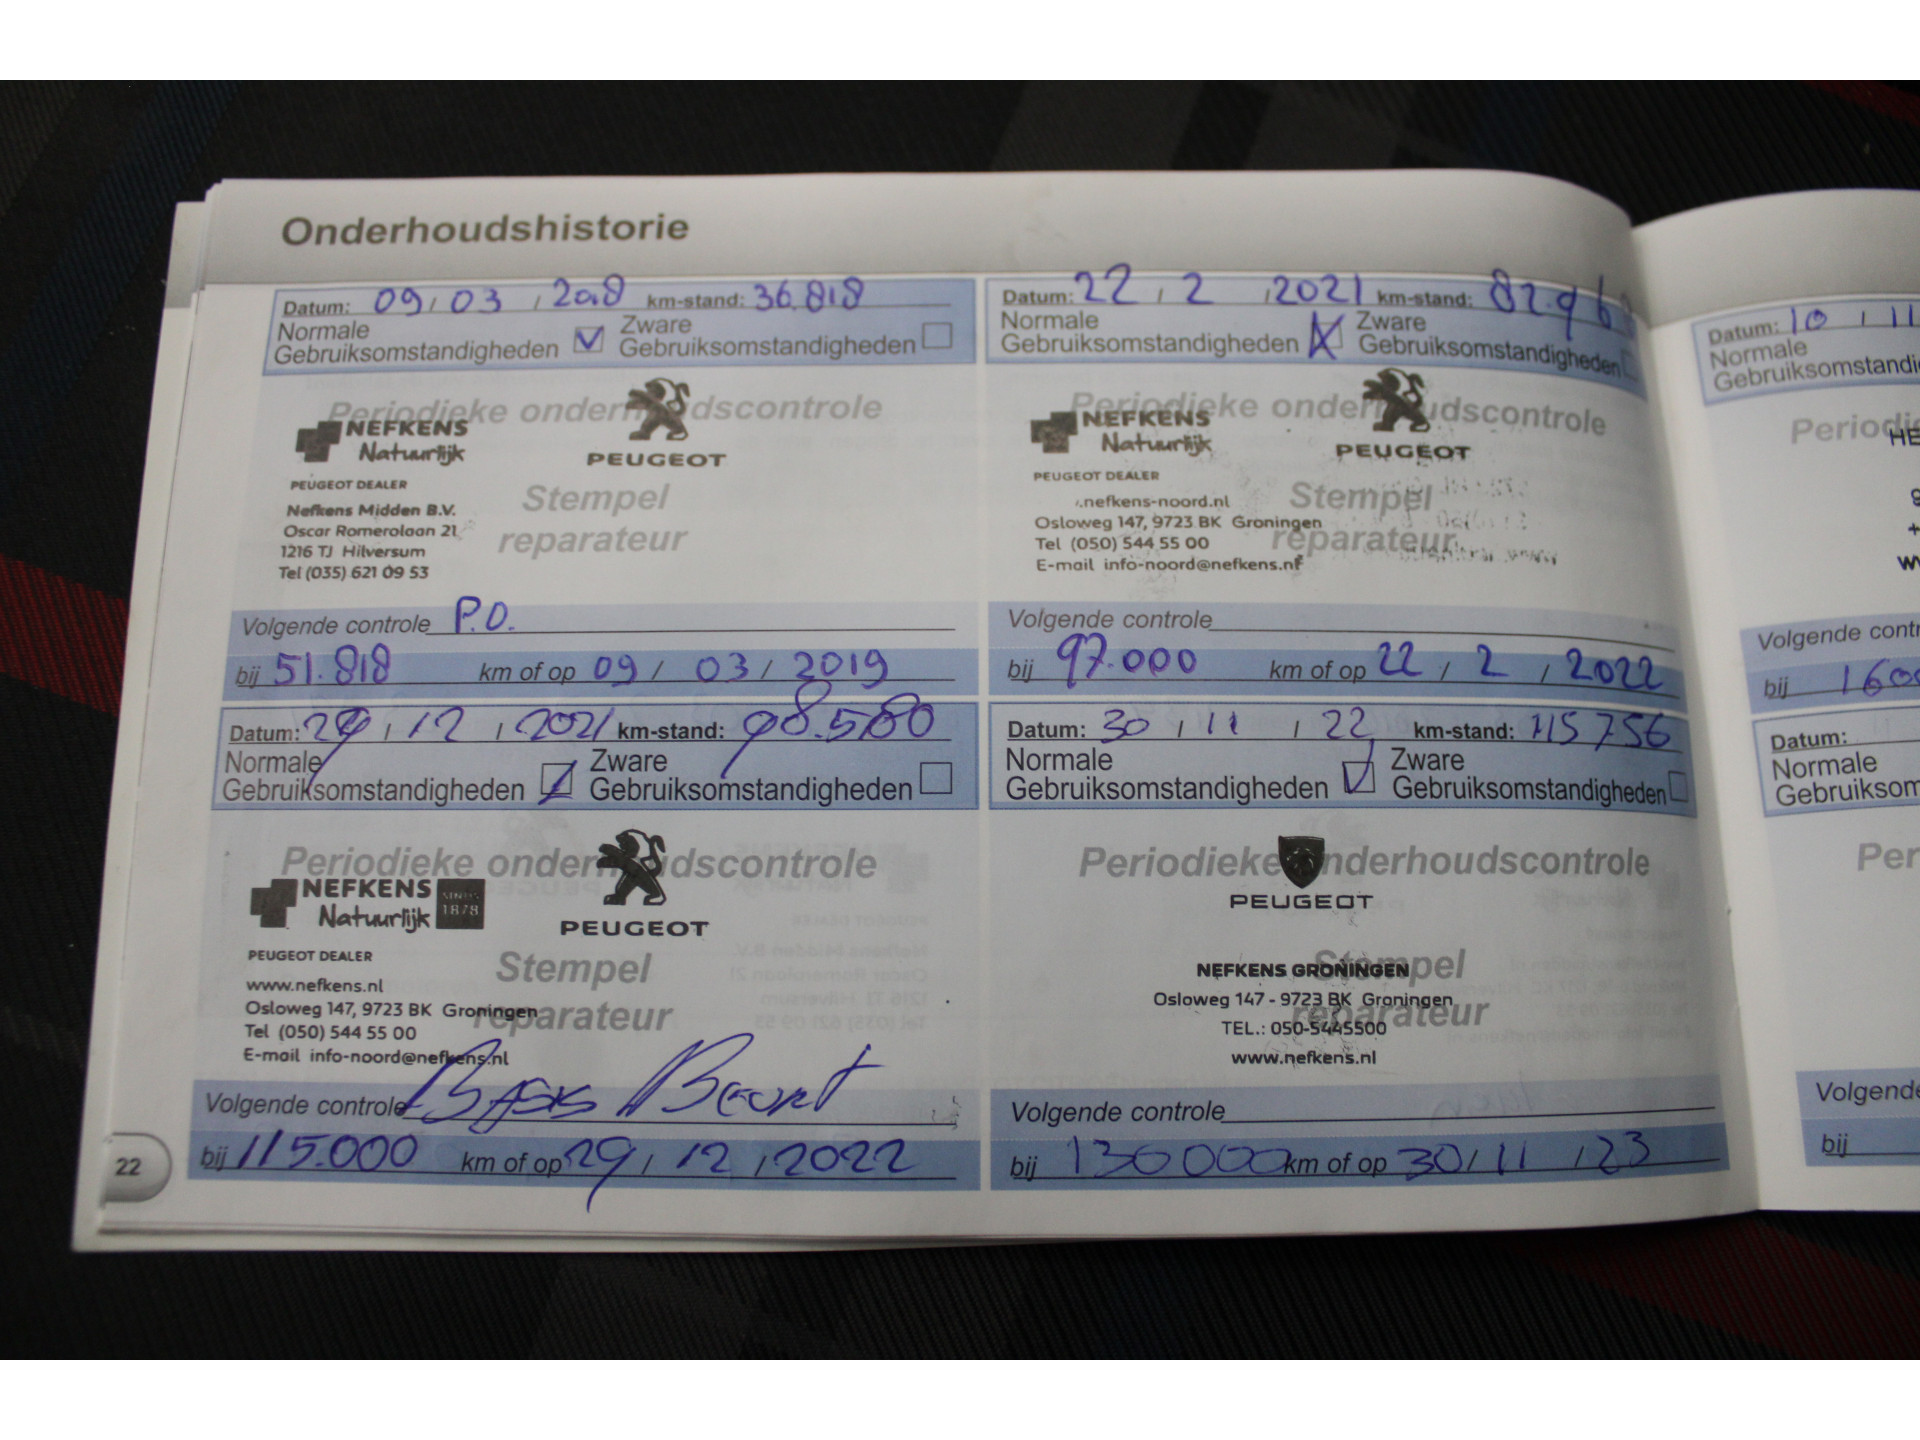 Onderhoudshistorie
Datum: 09 / 03 / 2018 km-stand: 36.818
Normale Gebruiksomstandigheden Zware Gebruiksomstandigheden
Periodieke onderhoudscontrole
NEFKENS
Natuurlijk
PEUGEOT
PEUGEOT DEALER
Stempel
reparateur
Nefkens Midden B.V.
Oscar Romerolaan 21
1216 TJ Hilversum
Tel (035) 621 09 53
Volgende controle P.O.
bij 51.818 km of op 09 / 03 / 2019
Datum: 22 / 2 / 2021 km-stand: 82.96
Normale Gebruiksomstandigheden Zware Gebruiksomstandigheden
Periodieke onderhoudscontrole
NEFKENS
Natuurlijk
PEUGEOT
PEUGEOT DEALER
Stempel
reparateur
.nefkens-noord.nl
Osloweg 147, 9723 BK Groningen
Tel (050) 544 55 00
E-mail info-noord@nefkens.nl
Volgende controle
bij 97.000 km of op 22 / 2 / 2022
Datum: 29 / 12 / 2021 km-stand: 98.580
Normale Gebruiksomstandigheden Zware Gebruiksomstandigheden
Periodieke onderhoudscontrole
NEFKENS
Natuurlijk
SINDS
1878
PEUGEOT
PEUGEOT DEALER
Stempel
reparateur
www.nefkens.nl
Osloweg 147, 9723 BK Groningen
Tel (050) 544 55 00
E-mail info-noord@nefkens.nl
Volgende controle BASIS Beurt
bij 115.000 km of op 29 / 12 / 2022
Datum: 30 / 11 / 22 km-stand: 115756
Normale Gebruiksomstandigheden Zware Gebruiksomstandigheden
Periodieke onderhoudscontrole
PEUGEOT
Stempel
reparateur
NEFKENS GRONINGEN
Osloweg 147 - 9723 BK Groningen
TEL.: 050-5445500
www.nefkens.nl
Volgende controle
bij 130000 km of op 30 / 11 / 23
22
Datum: 10 / 11
Normale
Gebruiksomstandi
Periodi
HE
Volgende contr
bij 160
Datum:
Normale
Gebruiksom
Per
Volgende
bij